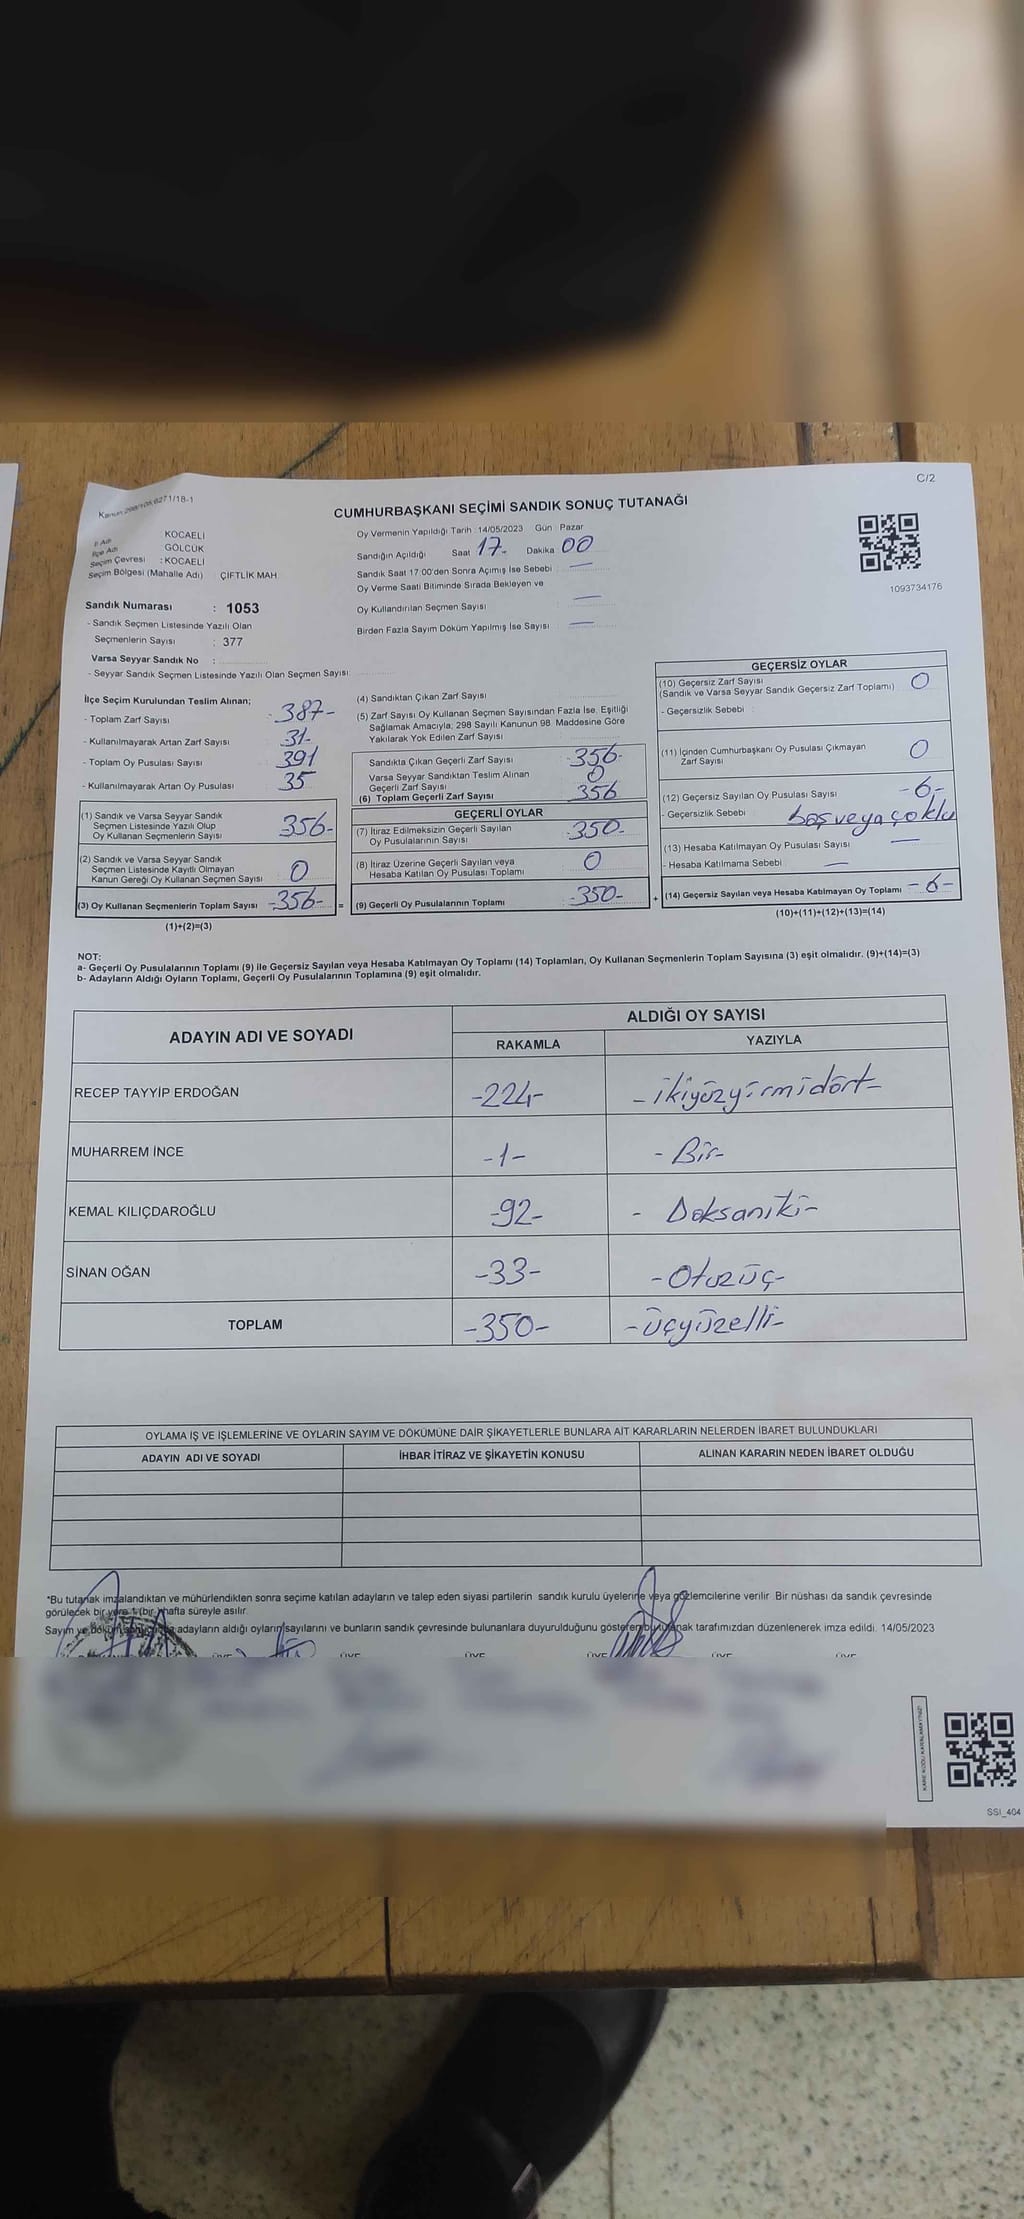 C/2
Kanun:298/105;6271/18-1
CUMHURBAŞKANI SEÇİMİ SANDIK SONUÇ TUTANAĞI
İl Adı KOCAELİ
İlçe Adı GÖLCÜK
Seçim Çevresi : KOCAELİ
Seçim Bölgesi (Mahalle Adı) ÇİFTLİK MAH
Oy Vermenin Yapıldığı Tarih : 14/05/2023 Gün : Pazar
Sandığın Açıldığı Saat 17- Dakika 00
Sandık Saat 17:00'den Sonra Açımış İse Sebebi : —
Oy Verme Saati Bitiminde Sırada Bekleyen ve
Oy Kullandırılan Seçmen Sayısı —
Birden Fazla Sayım Döküm Yapılmış İse Sayısı : —
1093734176
Sandık Numarası : 1053
- Sandık Seçmen Listesinde Yazılı Olan
Seçmenlerin Sayısı : 377
Varsa Seyyar Sandık No :
- Seyyar Sandık Seçmen Listesinde Yazılı Olan Seçmen Sayısı:
İlçe Seçim Kurulundan Teslim Alınan;
- Toplam Zarf Sayısı 387-
- Kullanılmayarak Artan Zarf Sayısı 31-
- Toplam Oy Pusulası Sayısı 391
- Kullanılmayarak Artan Oy Pusulası 35
(1) Sandık ve Varsa Seyyar Sandık
Seçmen Listesinde Yazılı Olup
Oy Kullanan Seçmenlerin Sayısı 356-
(2) Sandık ve Varsa Seyyar Sandık
Seçmen Listesinde Kayıtlı Olmayan
Kanun Gereği Oy Kullanan Seçmen Sayısı 0
(3) Oy Kullanan Seçmenlerin Toplam Sayısı -356- =
(1)+(2)=(3)
(4) Sandıktan Çıkan Zarf Sayısı
(5) Zarf Sayısı Oy Kullanan Seçmen Sayısından Fazla İse, Eşitliği
Sağlamak Amacıyla, 298 Sayılı Kanunun 98. Maddesine Göre
Yakılarak Yok Edilen Zarf Sayısı
Sandıkta Çıkan Geçerli Zarf Sayısı -356-
Varsa Seyyar Sandıktan Teslim Alınan
Geçerli Zarf Sayısı 0
(6) Toplam Geçerli Zarf Sayısı 356
GEÇERLİ OYLAR
(7) İtiraz Edilmeksizin Geçerli Sayılan
Oy Pusulalarının Sayısı -350-
(8) İtiraz Üzerine Geçerli Sayılan veya
Hesaba Katılan Oy Pusulası Toplamı 0
(9) Geçerli Oy Pusulalarının Toplamı -350- +
GEÇERSİZ OYLAR
(10) Geçersiz Zarf Sayısı
(Sandık ve Varsa Seyyar Sandık Geçersiz Zarf Toplamı) 0
- Geçersizlik Sebebi :
(11) İçinden Cumhurbaşkanı Oy Pusulası Çıkmayan
Zarf Sayısı 0
(12) Geçersiz Sayılan Oy Pusulası Sayısı -6-
- Geçersizlik Sebebi boş veya çoklu
(13) Hesaba Katılmayan Oy Pusulası Sayısı —
- Hesaba Katılmama Sebebi : —
(14) Geçersiz Sayılan veya Hesaba Katılmayan Oy Toplamı -6-
(10)+(11)+(12)+(13)=(14)
NOT:
a- Geçerli Oy Pusulalarının Toplamı (9) ile Geçersiz Sayılan veya Hesaba Katılmayan Oy Toplamı (14) Toplamları, Oy Kullanan Seçmenlerin Toplam Sayısına (3) eşit olmalıdır. (9)+(14)=(3)
b- Adayların Aldığı Oyların Toplamı, Geçerli Oy Pusulalarının Toplamına (9) eşit olmalıdır.
ADAYIN ADI VE SOYADI
ALDIĞI OY SAYISI
RAKAMLA YAZIYLA
RECEP TAYYİP ERDOĞAN -224- -ikiyüzyirmidört-
MUHARREM İNCE -1- -Bir-
KEMAL KILIÇDAROĞLU -92- - Doksaniki-
SİNAN OĞAN -33- -Otuzüç-
TOPLAM -350- -üçyüzelli-
OYLAMA İŞ VE İŞLEMLERİNE VE OYLARIN SAYIM VE DÖKÜMÜNE DAİR ŞİKAYETLERLE BUNLARA AİT KARARLARIN NELERDEN İBARET BULUNDUKLARI
ADAYIN ADI VE SOYADI İHBAR İTİRAZ VE ŞİKAYETİN KONUSU ALINAN KARARIN NEDEN İBARET OLDUĞU
*Bu tutanak imzalandıktan ve mühürlendikten sonra seçime katılan adayların ve talep eden siyasi partilerin sandık kurulu üyelerine veya gözlemcilerine verilir. Bir nüshası da sandık çevresinde
görülecek bir yere 1 (bir) hafta süreyle asılır.
Sayım ve döküm adayların aldığı oyların sayılarını ve bunların sandık çevresinde bulunanlara duyurulduğunu gösteren bu tutanak tarafımızdan düzenlenerek imza edildi. 14/05/2023
ÜYE ÜYE ÜYE ÜYE ÜYE ÜYE
SSI_404